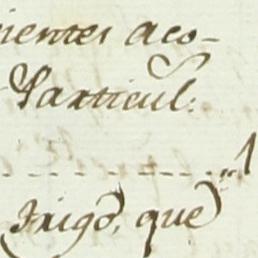 nientes aco-
Particul:
---------------„1
Trigo, que